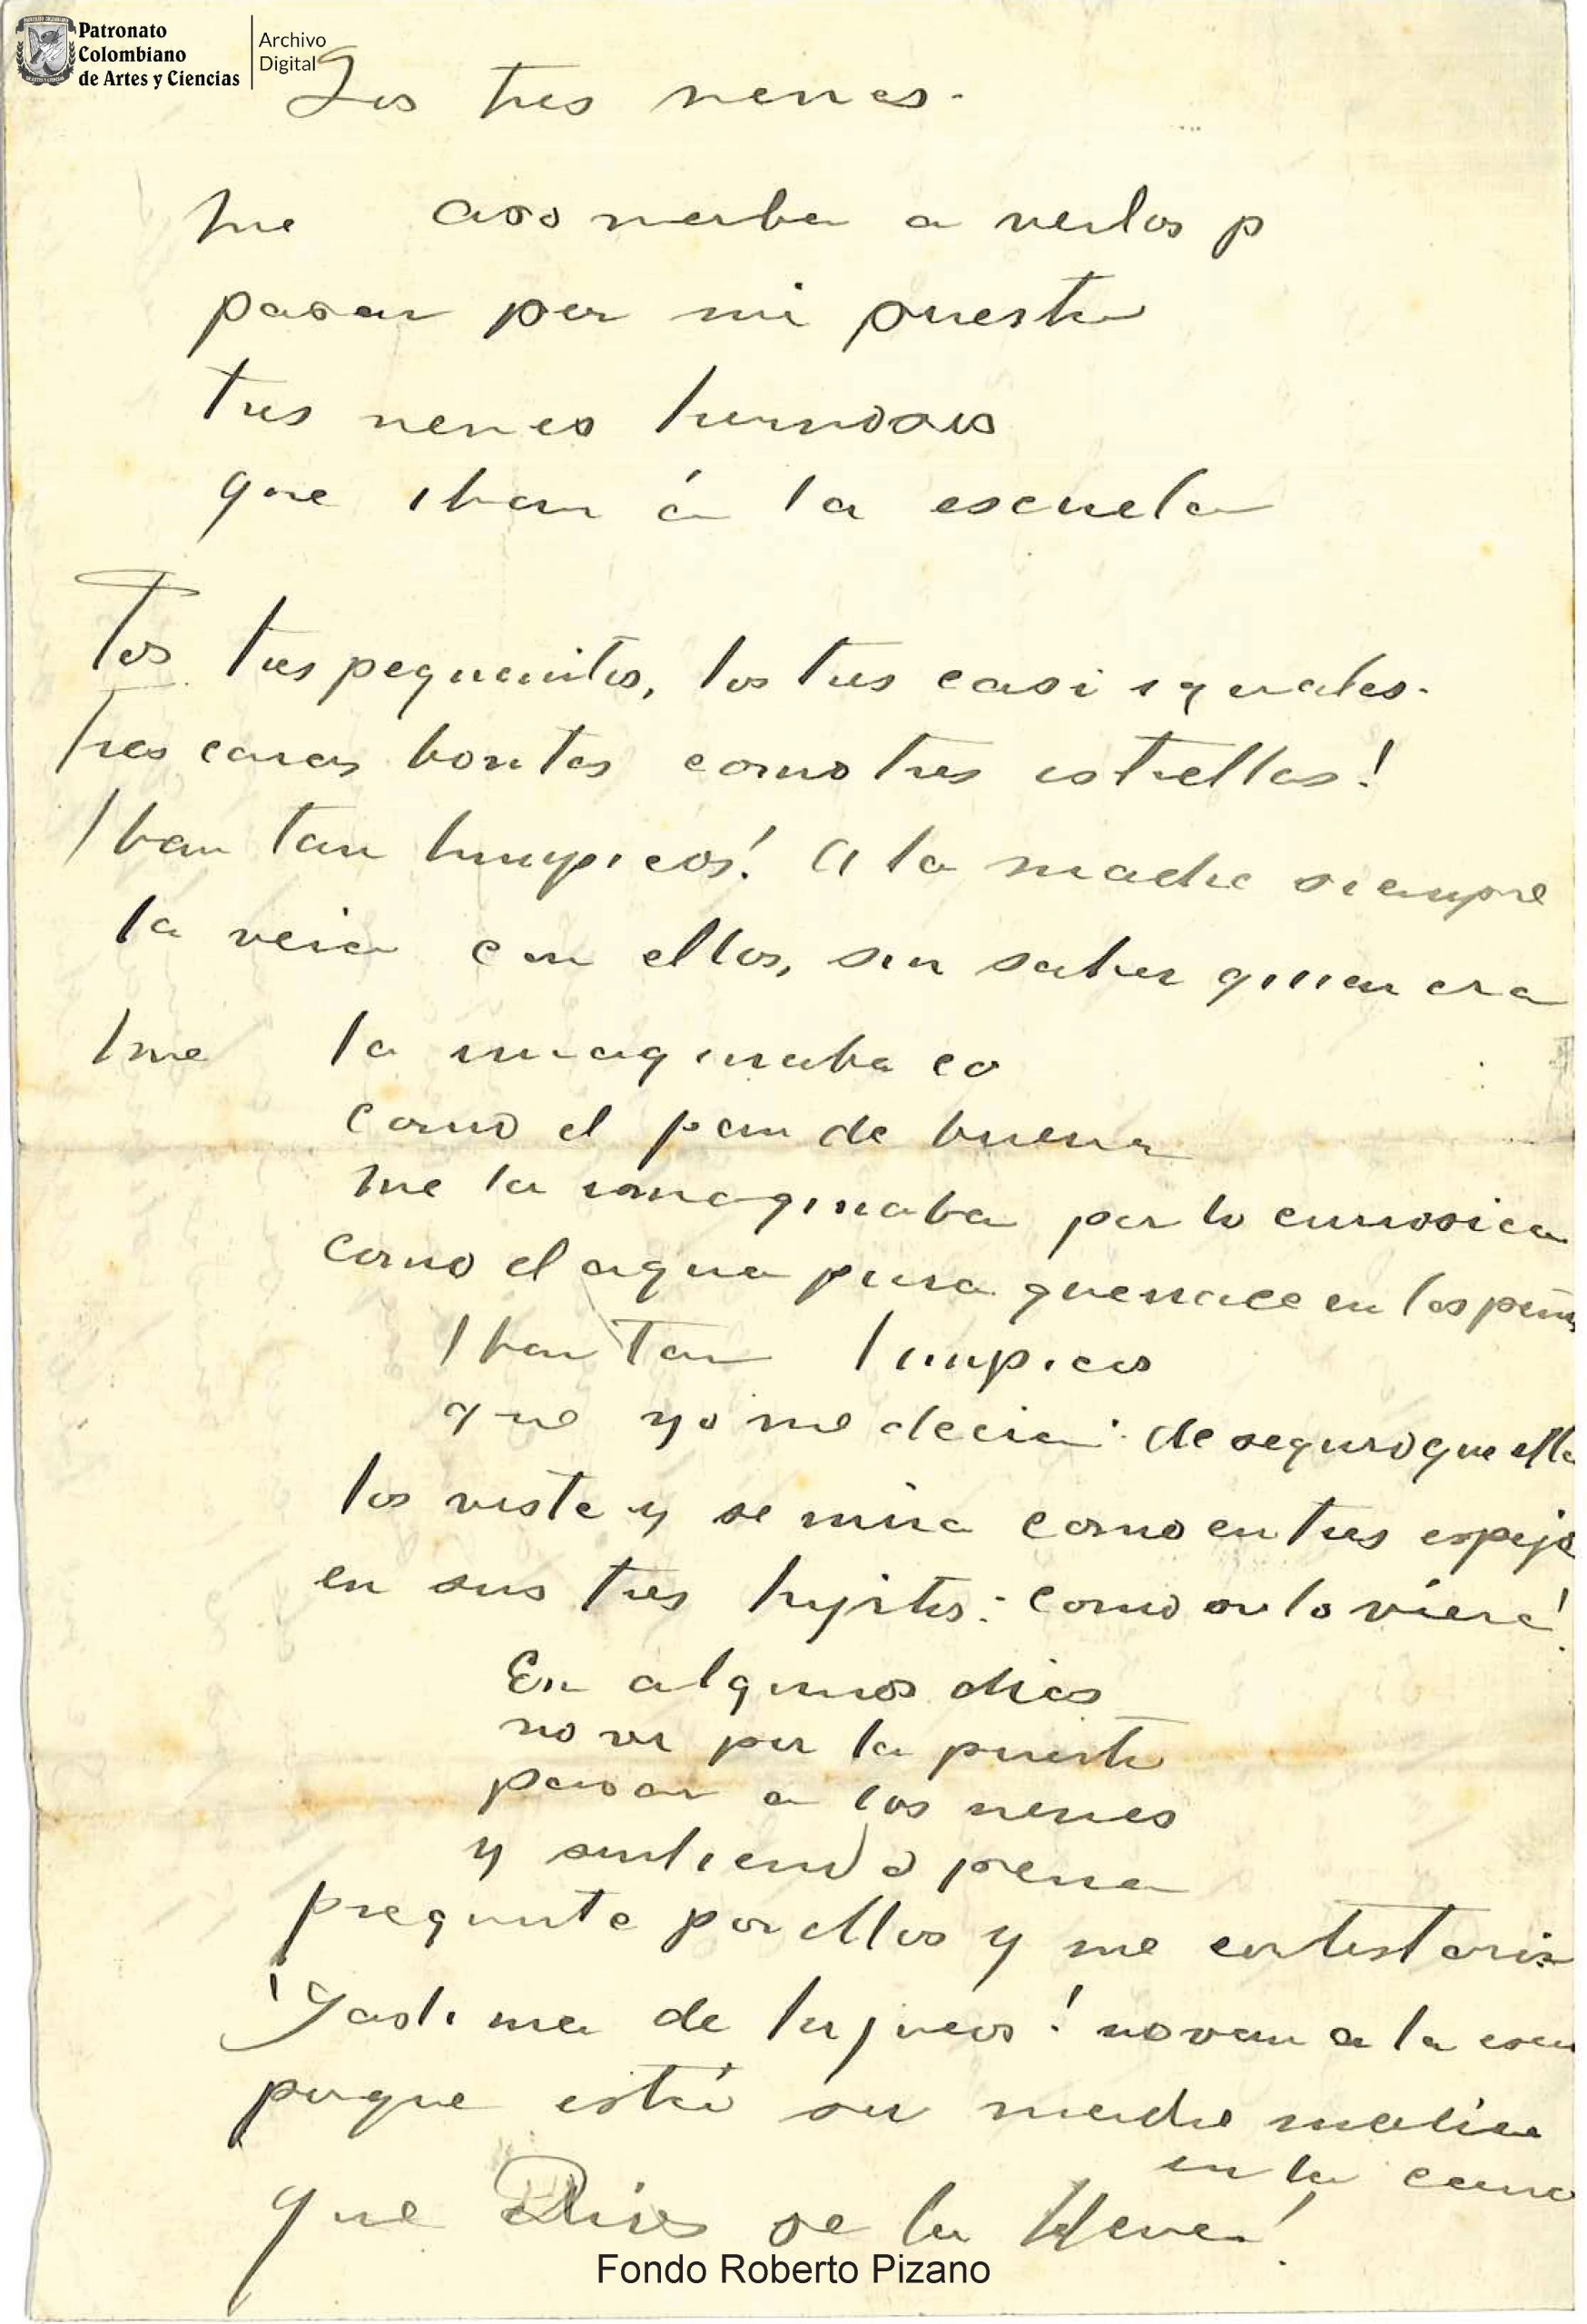 Patronato
Colombiano
de Artes y Ciencias
Archivo
Digital
Los tres nenes.
Me asomaba a verlos p
pasar por mi puerta
tres nenes hermosos
que iban á la escuela
Los tres pequeñitos, los tres casi iguales.
Tres caras bonitas como tres estrellas!
Iban tan limpicos! A la madre siempre
la veia con ellos, sin saber quien era
I me la imaginaba co
como el pan de buena
me la imaginaba por lo curiosica
como el agua pura que nace en las peñas
Iban tan limpicos
que yo me decia: de seguro que ella
los viste y se mira como en tres espejo
en sus tres hijitos: como si lo viera!
En algunos dias
no vi por la puerta
pasar a los nenes
y sintiendo pena
pregunte por ellos y me contestaron
¡Lastima de hijicos! no van a la escu
porque está su madre malica
en la cama
que Dios se la lleva!
Fondo Roberto Pizano